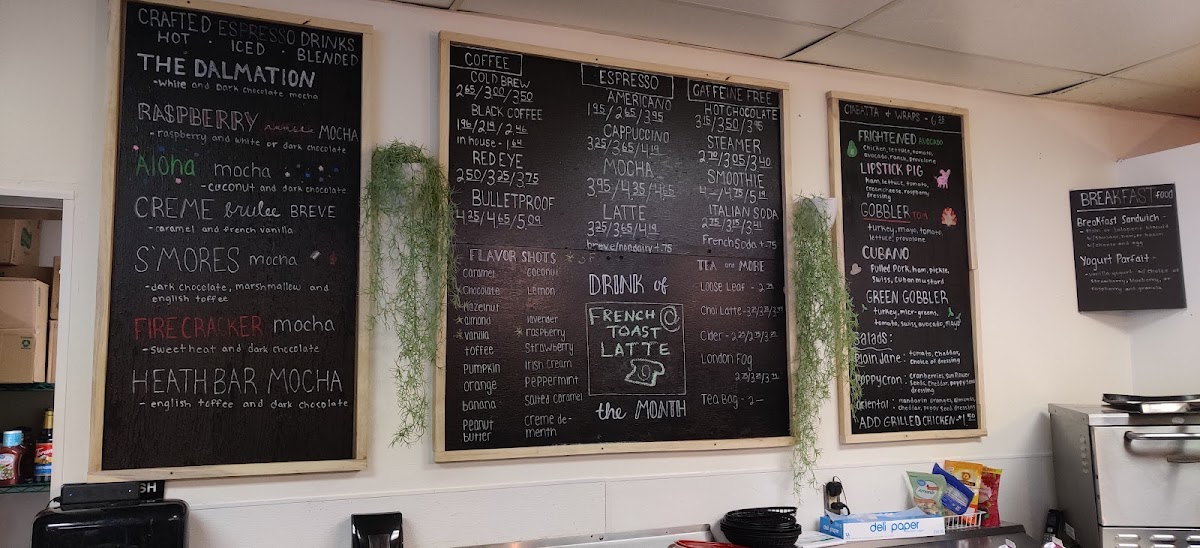 CRAFTED ESPRESSO DRINKS
HOT · ICED · BLENDED
THE DALMATION
-white and dark chocolate mocha
RASPBERRY MOCHA
-raspberry and white or dark chocolate
Aloha mocha
-coconut and dark chocolate
CREME brulee BREVE
-caramel and french vanilla
S'MORES mocha
-dark chocolate, marshmallow and
english toffee
FIRECRACKER mocha
-sweet heat and dark chocolate
HEATH BAR MOCHA
-english toffee and dark chocolate
COFFEE
COLD BREW
2.65/3.00/3.50
BLACK COFFEE
1.96/2.15/2.46
in house - 1.64
RED EYE
2.50/3.25/3.75
BULLETPROOF
4.25/4.65/5.09
ESPRESSO
AMERICANO
1.95/2.65/3.95
CAPPUCCINO
3.25/3.65/4.19
MOCHA
3.95/4.35/4.65
LATTE
3.25/3.65/4.19
breve/nondairy +.75
CAFFEINE FREE
HOT CHOCOLATE
3.15/3.50/3.95
STEAMER
2.70/3.05/3.40
SMOOTHIE
ITALIAN SODA
2.75/3.15/3.41
French Soda +.75
FLAVOR SHOTS
caramel
Chocolate
Hazelnut
almond
vanilla
toffee
pumpkin
orange
banana
Peanut
butter
coconut
Lemon
lavender
raspberry
Strawberry
Irish cream
Peppermint
Salted Caramel
creme de-
menth
DRINK of
FRENCH
TOAST
LATTE
the MONTH
TEA and MORE
Loose Leaf -
Chai Latte -
Cider -
London Fog
Tea Bag - 2
CIABATTA + WRAPS -
FRIGHTENED AVOCADO
Chicken, lettuce, tomato,
avocado, ranch, provolone
LIPSTICK PIG
ham, lettuce, tomato,
creamcheese, raspberry
dressing
GOBBLER TOM
turkey, mayo, tomato,
lettuce, provolone
CUBANO
Pulled Pork, ham, pickle,
Swiss, Cuban mustard
GREEN GOBBLER
turkey, micr-greens,
tomato, swiss, avocado, mayo
Salads:
Plain Jane: tomato, Cheddar,
choice of dressing
Poppycron: cranberries, sunflower
seeds, cheddar, poppy seed
dressing
Oriental: mandarin oranges, almonds,
cheddar, poppy seed dressing
ADD GRILLED CHICKEN
BREAKFAST FOOD
Breakfast Sandwich -
Yogurt Parfait -
deli paper